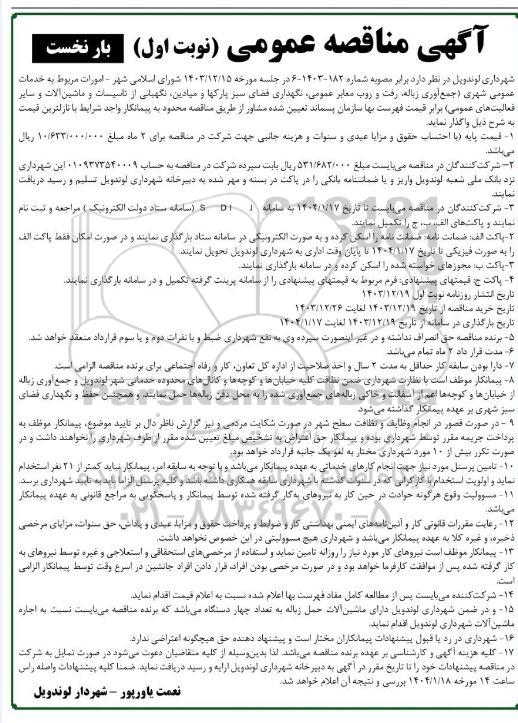 آگهی مناقصه عمومی (نوبت اول) بار نخست
شهرداری لوندویل در نظر دارد برابر مصوبه شماره ۱۸۲-۱۴۰۳-۶ در جلسه مورخه ۱۴۰۳/۱۲/۱۵ شورای اسلامی شهر - امورات مربوط به خدمات
عمومی شهری (جمع‌آوری زباله، رفت و روب معابر عمومی، نگهداری فضای سبز پارکها و میادین، نگهبانی از تاسیسات و ماشین‌آلات و سایر
فعالیت‌های عمومی) برابر قیمت فهرست بها سازمان پسماند تعیین شده مشاور از طریق مناقصه محدود به پیمانکار واجد شرایط با نازلترین قیمت
به شرح ذیل واگذار نماید.
۱- قیمت پایه (با احتساب حقوق و مزایا عیدی و سنوات و هزینه جانبی جهت شرکت در مناقصه برای ۲ ماه مبلغ ۱۰/۶۳۳/۰۰۰/۰۰۰ ریال
می‌باشد.
۲- شرکت‌کنندگان در مناقصه می‌بایست مبلغ ۵۳۱/۶۸۲/۰۰۰ ریال بابت سپرده شرکت در مناقصه به حساب ۰۱۰۹۳۷۳۵۴۰۰۰۹ این شهرداری
نزد بانک ملی شعبه لوندویل واریز و یا ضمانتنامه بانکی را در پاکت در بسته و مهر شده به دبیرخانه شهرداری لوندویل تسلیم و رسید دریافت
نمایند.
۳- شرکت‌کنندگان در مناقصه می‌بایست تا تاریخ ۱۴۰۴/۱/۱۷ به سامانه S DI I (سامانه ستاد دولت الکترونیک) مراجعه و ثبت نام
نمایند و پاکت‌های الف، ب، ج را تکمیل نمایند.
۲-پاکت الف: ضمانت نامه: ضمانت نامه را اسکن کرده و به صورت الکترونیکی در سامانه ستاد بارگذاری نمایند و در صورت امکان فقط پاکت الف
را به صورت فیزیکی تا تاریخ ۱۴۰۴/۱/۱۷ تا پایان وقت اداری به شهرداری لوندویل تحویل نمایند.
۳-پاکت ب: مجوزهای خواسته شده را اسکن کرده و در سامانه بارگذاری نمایند.
۴- پاکت ج: قیمتهای پیشنهادی: فرم مربوط به قیمتهای پیشنهادی را از سامانه پرینت گرفته تکمیل و در سامانه بارگذاری نمایند.
تاریخ انتشار روزنامه نوبت اول ۱۴۰۳/۱۲/۱۹
تاریخ خرید مناقصه از تاریخ ۱۴۰۳/۱۲/۱۹ لغایت ۱۴۰۳/۱۲/۲۶
تاریخ بارگذاری در سامانه از تاریخ ۱۴۰۳/۱۲/۱۹ لغایت ۱۴۰۴/۱/۱۷
۵- برنده مناقصه حق انصراف نداشته و در غیر اینصورت سپرده وی به نفع شهرداری ضبط و با نفرات دوم و یا سوم قرارداد منعقد خواهد شد.
۶- مدت قرار داد ۲ ماه تمام می‌باشد.
۷- دارا بودن سابقه کار حداقل به مدت ۲ سال و اخذ صلاحیت از اداره کل تعاون، کار و رفاه اجتماعی برای برنده مناقصه الزامی است.
۸- پیمانکار موظف است با نظارت شهرداری ضمن نظافت کلیه خیابان‌ها و کوچه‌ها و کانال‌های محدوده خدماتی شهر لوندویل و جمع‌آوری زباله
از خیابان‌ها و کوچه‌ها اعم از آسفالت و خاکی زباله‌های جمع‌آوری شده را به محل دفن زباله‌ها حمل نمایند. و همچنین حفظ و نگهداری فضای
سبز شهری بر عهده پیمانکار گذاشته می‌شود.
۹ - در صورت قصور در انجام وظایف و نظافت سطح شهر در صورت شکایت مردمی و نیز گزارش ناظر دال بر تایید موضوع، پیمانکار موظف به
پرداخت جریمه مقرر توسط شهرداری بوده و پیمانکار حق اعتراض به تشخیص مبلغ تعیین شده مقرر از طرف شهرداری را نخواهند داشت و در
صورت تکرر بیش از ۱۰ مورد شهرداری مختار به لغو یک جانبه قرارداد خواهد بود.
۱۰- تامین پرسنل مورد نیاز جهت انجام کارهای خدماتی به عهده پیمانکار می‌باشد و با توجه به سابقه امر، پیمانکار نباید کمتر از ۲۱ نفر استخدام
نماید و اولویت استخدام با کارگرانی که در سنوات گذشته با شهرداری سابقه همکاری داشته باشد، و کلیه پرسنل الزاما باید به تایید شهرداری برسد.
۱۱- مسوولیت وقوع هرگونه حوادث در حین کار به نیروهای به‌کار گرفته شده توسط پیمانکار و پاسخگویی به مراجع قانونی به عهده پیمانکار
می‌باشد.
۱۲- رعایت مقررات قانونی کار و آئین‌نامه‌های ایمنی بهداشتی کار و ضوابط و پرداخت حقوق و مزایا، عیدی و پاداش، حق سنوات، مزایای مرخصی
ذخیره، و غیره کلا به عهده پیمانکار می‌باشد و شهرداری هیچ مسوولیتی در این خصوص نخواهد داشت.
۱۳- پیمانکار موظف است نیروهای کار مورد نیاز را روزانه تامین نماید و استفاده از مرخصی‌های استحقاقی و استعلاجی و غیره توسط نیروهای به
کار گرفته شده پس از موافقت کارفرما خواهد بود و در صورت مرخصی بودن افراد، قرار دادن افراد جانشین در اسرع وقت توسط پیمانکار الزامی
است.
۱۴- شرکت‌کننده می‌بایست پس از مطالعه کامل مفاد فهرست بها اعلام شده نسبت به اعلام قیمت اقدام نماید.
۱۵- و در ضمن شهرداری لوندویل دارای ماشین‌آلات حمل زباله به تعداد چهار دستگاه می‌باشد که برنده مناقصه می‌بایست نسبت به اجاره
ماشین‌آلات شهرداری لوندویل اقدام نماید.
۱۶- شهرداری در رد یا قبول پیشنهادات پیمانکاران مختار است و پیشنهاد دهنده حق هیچگونه اعتراضی ندارد.
۱۷- کلیه هزینه آگهی و کارشناسی بر عهده برنده مناقصه می‌باشد. لذا بدین‌وسیله از کلیه متقاضیان دعوت می‌شود در صورت تمایل به شرکت
در مناقصه پیشنهادات خود را تا تاریخ مقرر در آگهی به دبیرخانه شهرداری لوندویل ارایه و رسید دریافت نماید. ضمنا کلیه پیشنهادات واصله راس
ساعت ۱۴ مورخه ۱۴۰۴/۱/۱۸ بررسی و نتیجه آن اعلام خواهد شد.
نعمت یاورپور - شهردار لوندویل
۰۲۱-۸۸۳۴۹۶۷۰-۵